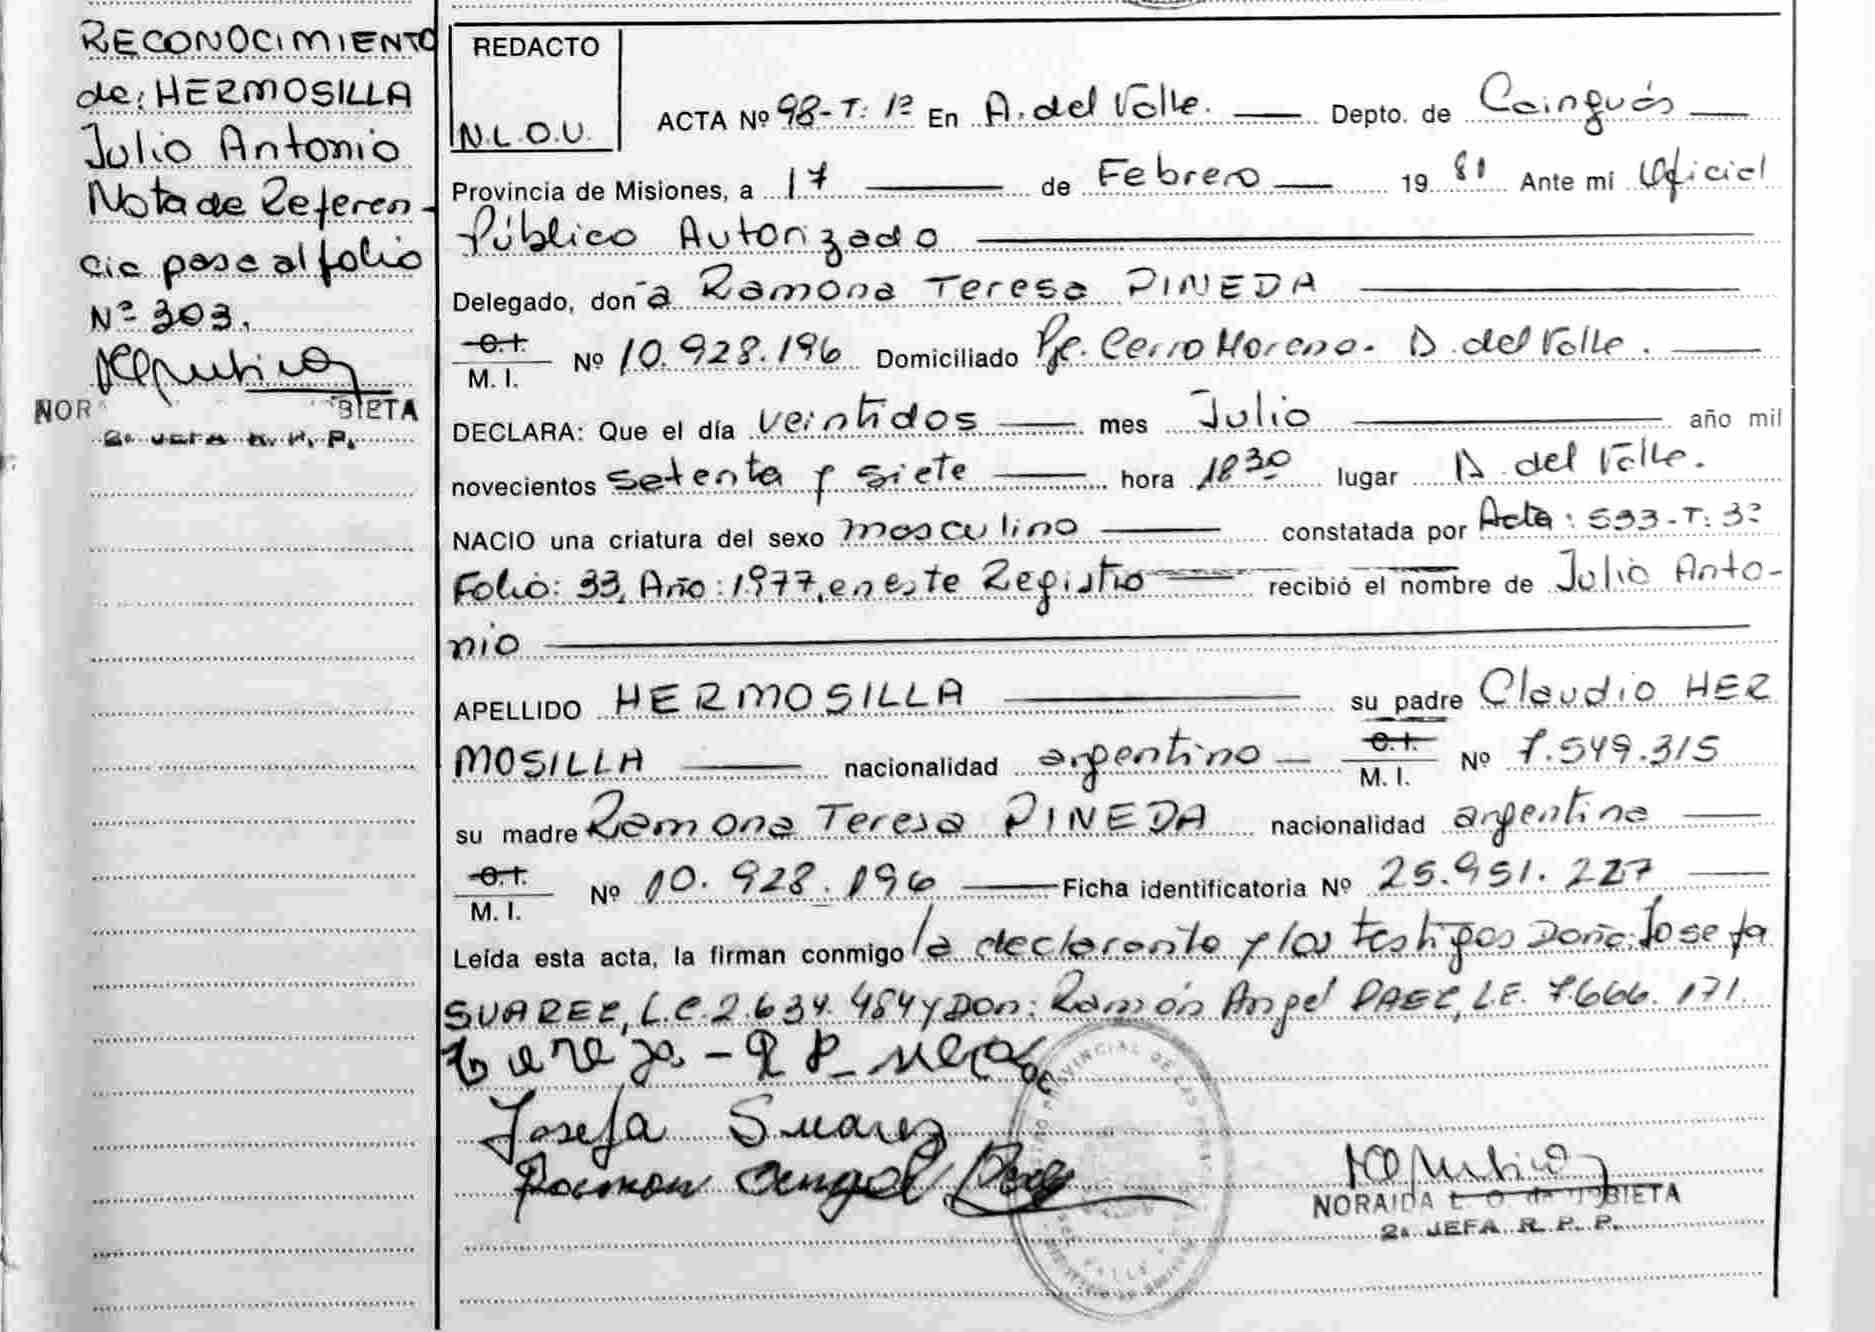 RECONOCIMIENTO
de: HERMOSILLA
Julio Antonio
Nota de Referen-
cia pase al folio
Nº 303.
NOR BIETA
2a JEFA R. P. P.
REDACTO
N.L.O.U.
ACTA Nº 98-T. 1º En A. del Valle. Depto. de Cainguás
Provincia de Misiones, a 17 de Febrero 1981 Ante mi Oficial
Público Autorizado
Delegado, don a Ramona Teresa PINEDA
C.I.
M. I. Nº 10.928.196 Domiciliado Pje. Cerro Moreno. A. del Valle.
DECLARA: Que el día veintidos mes Julio año mil
novecientos setenta y siete hora 18 30 lugar A. del Valle.
NACIO una criatura del sexo masculino constatada por Acta: 533-T. 3º
Folio: 33, Año: 1977, en este Registro recibió el nombre de Julio Anto-
nio
APELLIDO HERMOSILLA su padre Claudio HER
MOSILLA nacionalidad argentino C.I. M. I. Nº 7.549.315
su madre Ramona Teresa PINEDA nacionalidad argentina
C.I.
M. I. Nº 10.928.196 Ficha identificatoria Nº 25.951.227
Leída esta acta, la firman conmigo la declarante y los testigos Doña: Josefa
SUAREZ, L.C. 2.634.484 y Don: Ramón Angel PAEZ, L.E. 7.666.171.
Josefa Suarez
Ramon Angel
NORAIDA BIETA
2a JEFA R. P. P.